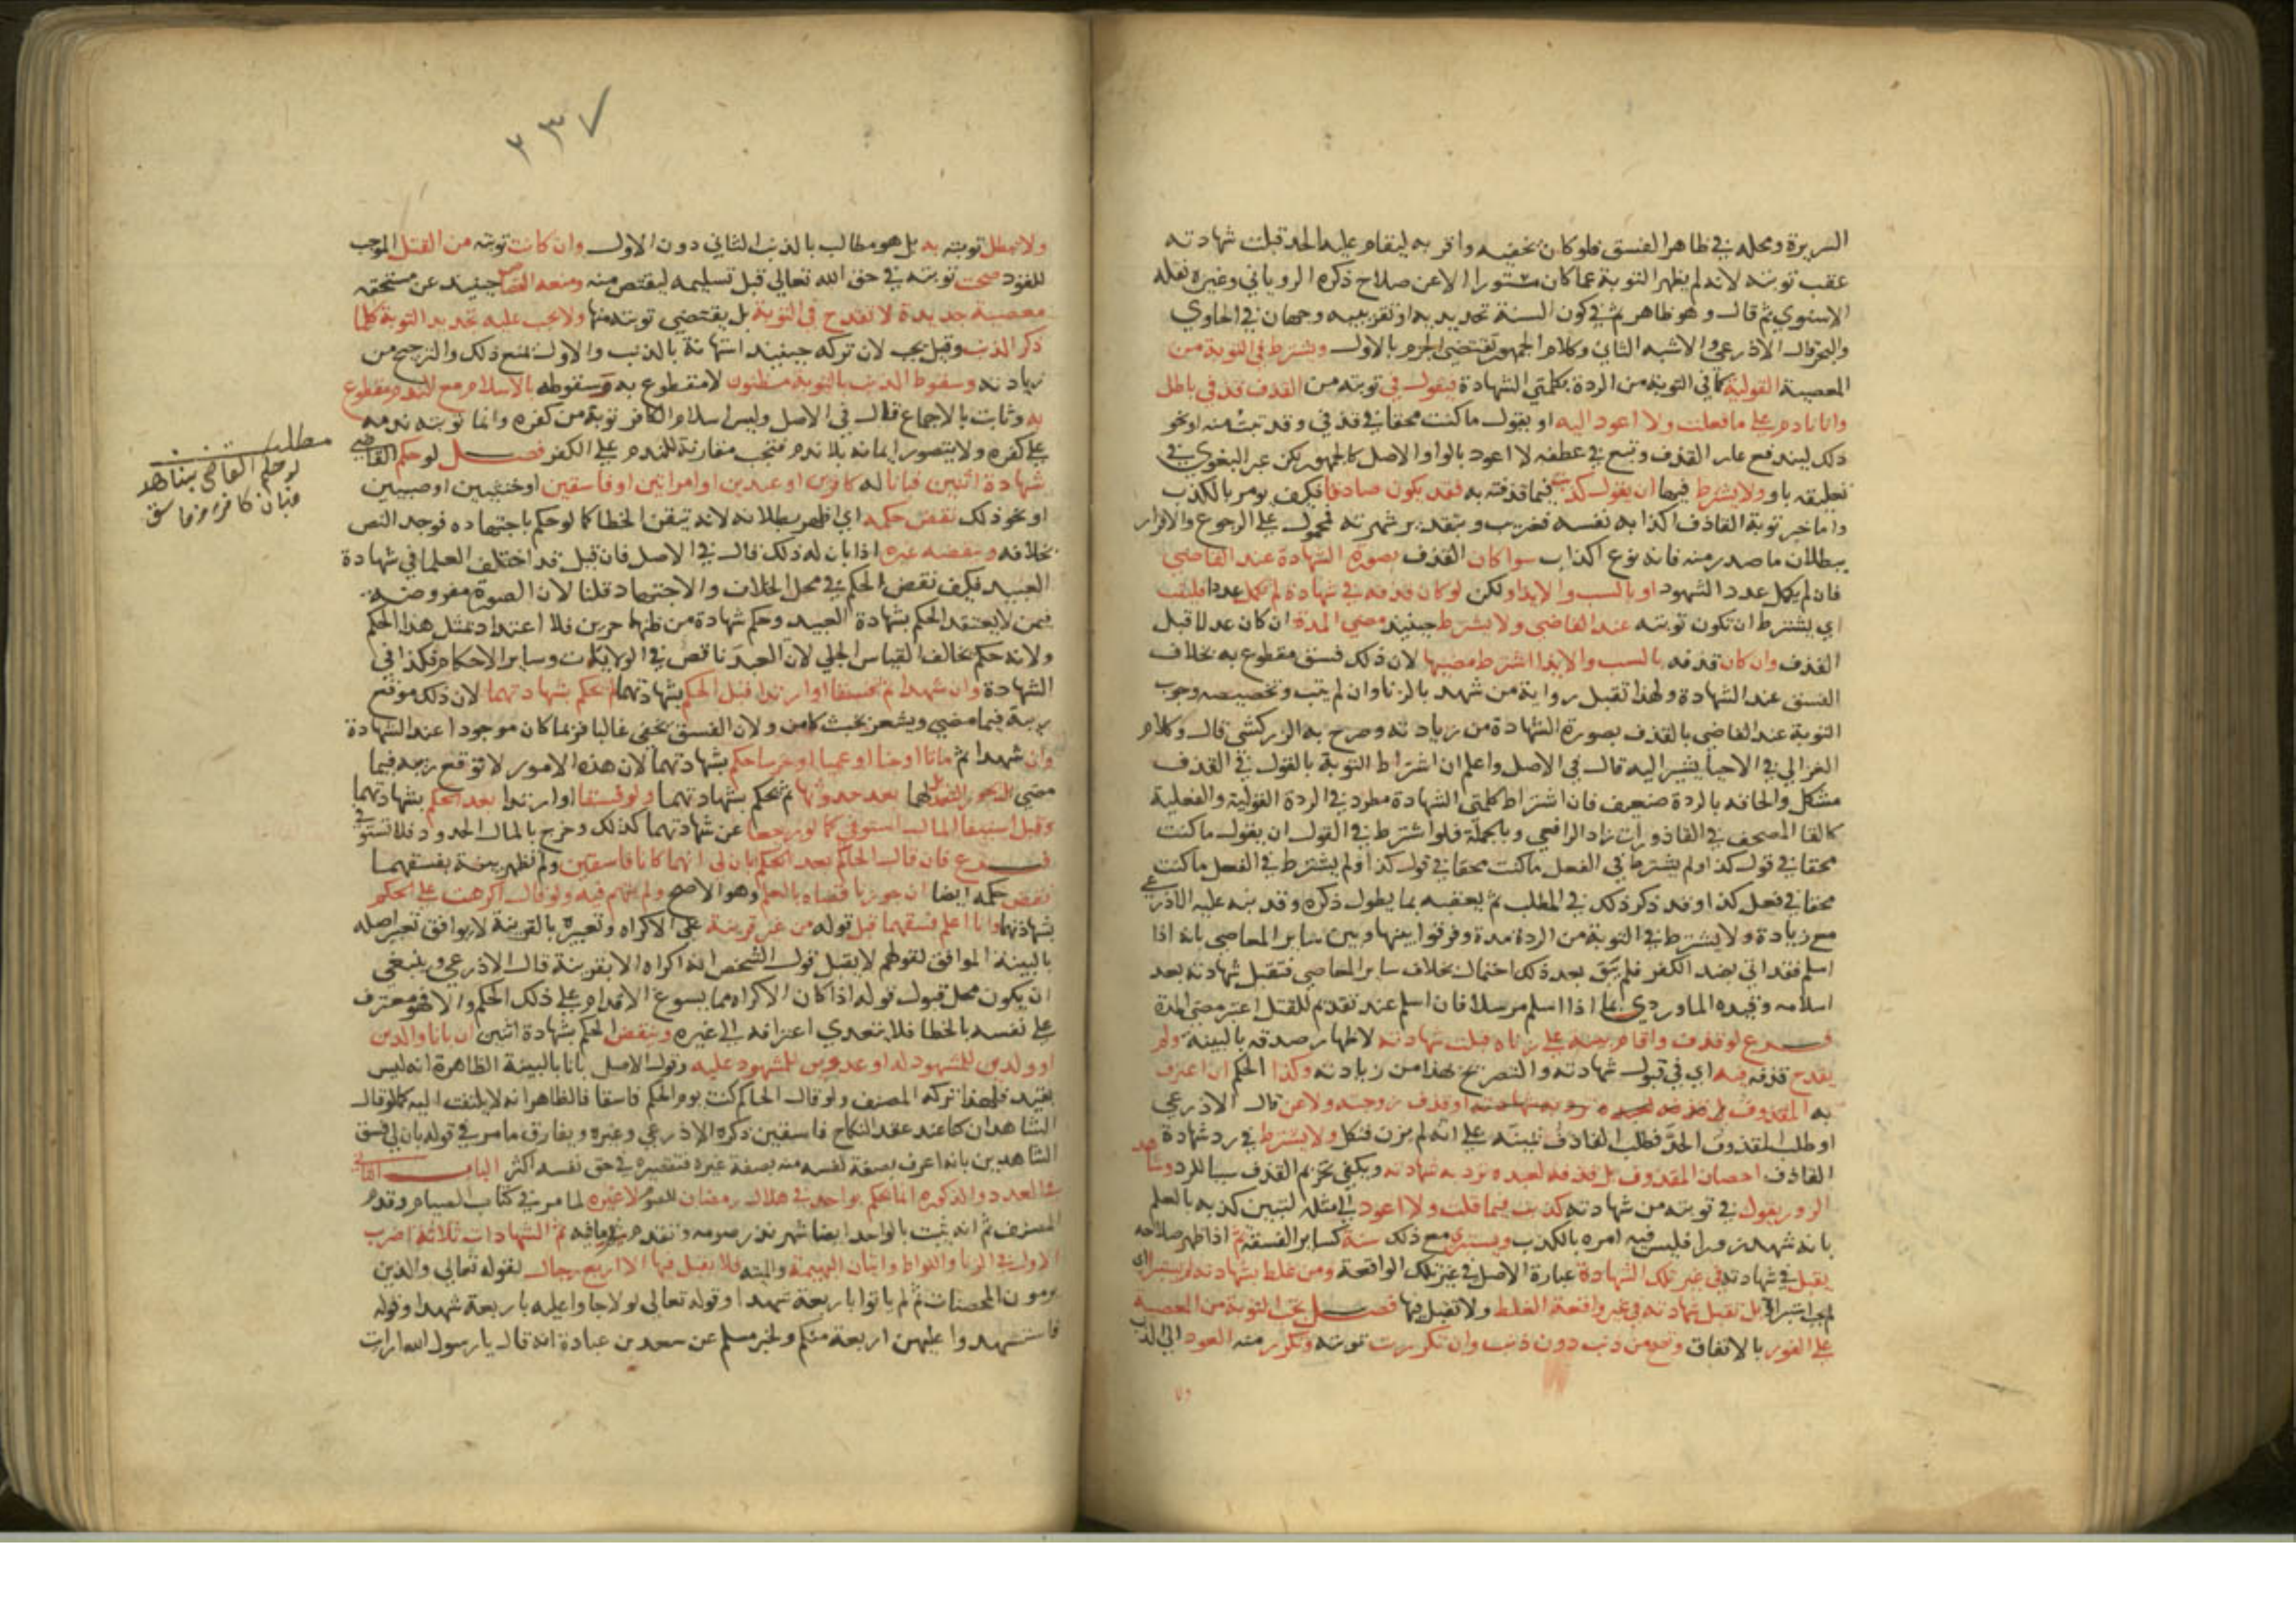 السريرة ومحله في ظاهر الفسق فلو كان يخفيه واقر به ليقام عليه الحد قبلت شهادته
عقب توبته لانه لم يظهر التوبة عما كان مستورا الا عن صلاح ذكره الروياني وغيره نقله
الاسنوي ثم قال وهو ظاهر ثم في كون السنة تحديدية او تقريبية وجهان في الحاوي
والبحر قال الاذرعي والاشبه الثاني وكلام الجمهور يقتضي الجزم بالاول ويشترط في التوبة من
المعصية القولية كما في التوبة من الردة بكلمتي الشهادة فيقول في توبته من القذف قذفي باطل
وانا نادم على ما فعلت ولا اعود اليه او يقول ما كنت محقا في قذفي وقد تبت منه او نحو
ذلك ليندفع عار القذف وتبع في عطفه لا اعود بالواو الاصل كالجمهور لكن عبر البغوي في
تعليقه باو ولا يشترط فيها ان يقول كذبت فيما قذفته به فقد يكون صادقا فكيف يومر بالكذب
واما خبر توبة القاذف اكذابه نفسه فغريب وبتقدير شهرته محمول على الرجوع والاقرار
ببطلان ما صدر منه فانه نوع اكذاب سوا كان القذف بصورة الشهادة عند القاضي
فان لم يكمل عدد الشهود او بالسب والايذا ولكن لو كان قذفه في شهادة لم يكمل عددها فليتب
اي يشترط ان تكون توبته عند القاضي ولا يشترط حينيذ مضي المدة ان كان عدلا قبل
القذف وان كان قذفه بالسب والايذا اشترط مضيها لان ذلك فسق مقطوع به بخلاف
الفسق عند الشهادة ولهذا تقبل رواية من شهد بالزنا وان لم يتب وتخصيصه وجوب
التوبة عند القاضي بالقذف بصورة الشهادة من زيادته وصرح به الزركشي قال وكلام
الغزالي في الاحيا يشير اليه قال في الاصل واعلم ان اشتراط التوبة بالقول في القذف
مشكل والحاقه بالردة ضعيف فان اشتراط كلمتي الشهادة مطرد في الردة القولية والفعلية
كالقا المصحف في القاذورات زاد الرافعي وبالجملة فلو اشترط في القول ان يقول ما كنت
محقا في قول كذا ولم يشترط في الفعل ما كنت محقا في قول كذا ولم يشترط في الفعل ما كنت
محقا في فعل كذا وقد ذكر ذلك في المطلب ثم يعقبه بما يطول ذكره وقد نبه عليه الاذرعي
مع زيادة ولا يشترط في التوبة من الردة مدة وفرقوا بينها وبين ساير المعاصي بانه اذا
اسلم فقد اتى بضد الكفر فلم يبق بعد ذلك احتمال بخلاف ساير المعاصي فتقبل شهادته بعد
اسلامه وقيده الماوردي بما اذا اسلم مرسلا فان اسلم عند تقديم للقتل اعتبر مضي المدة
فرع لو قذف واقام بينة على زناه قبلت شهادته لاظهار صدقه بالبينة ولم
يقدح قذفه فيه اي في قبول شهادته والتصريح بهذا من زيادته وكذا الحكم ان اعترف
به المقذوف او قذف زوجته ولاعن قال الاذرعي
او طلب المقذوف الحد فطلب القاذف يمينه على انه لم يزن فنكل ولا يشترط في رد شهادة
القاذف احصان المقذوف بل قذفه لعبده ترد به شهادته ويكفي تحريم القذف سببا للرد وشاهد
الزور يقول في توبته من شهادته كذبت فيما قلت ولا اعود الى مثله لتبين كذبه بالعلم
بانه شهد زورا فليس فيه امره بالكذب ويستبرى مع ذلك سنة كساير الفسقة ثم اذا ظهر صلاحه
يقبل في شهادته في غير تلك الشهادة عبارة الاصل في غير تلك الواقعة ومن غلط بشهادته لم يستبرا اي
لم يجب استبراوه بل تقبل شهادته في غير واقعة الغلط ولا تقبل فيها فصل تجب التوبة من المعصية
على الفور بالاتفاق وتصح من ذنب دون ذنب وان تكررت توبته وتكرر منه العود الى الذنب
٢٣٧
ولا تبطل توبته به بل هو مطالب بالذنب الثاني دون الاول وان كانت توبته من القتل الموجب
للقود صحت توبته في حق الله تعالى قبل تسليمه ليقتص منه ومنعه القصاص حينيذ عن مستحقه
معصية جديدة لا تقدح في التوبة بل يقتضي توبته منها ولا يجب عليه تجديد التوبة كلما
ذكر الذنب وقيل يجب لان تركه حينيذ استهانة بالذنب والاول يمنع ذلك والترجيح من
زيادته وسقوط الذنب بالتوبة مظنون لا مقطوع به وسقوطه بالاسلام مع الندم مقطوع
به وثابت بالاجماع قال في الاصل وليس اسلام الكافر توبة من كفره وانما توبته ندمه
على كفره ولا يتصور ايمانه بلا ندم فتجب مقارنة للندم على الكفر فصل لو حكم القاضي
شهادة اثنين فبانا له كافرين او عبدين او امراتين او فاسقين او خنثيين او صبيين
او نحو ذلك نقض حكمه اي اظهر بطلانه لانه تيقن الخطا كما لو حكم باجتهاده فوجد النص
بخلافه وينقضه غيره اذا بان له ذلك قال في الاصل فان قيل قد اختلف العلما في شهادة
العبيد فكيف نقض الحكم في محل الخلاف والاجتهاد قلنا لان الصورة مفروضة
فيمن لا يعتقد الحكم بشهادة العبيد وحكم شهادة من ظنهما حرين فلا اعتداد بمثل هذا الحكم
ولانه حكم يخالف القياس الجلي لان العبد ناقص في الولايات وساير الاحكام فكذا في
الشهادة وان شهدا ثم فسقا او ارتدا قبل الحكم بشهادتهما لم يحكم بشهادتهما لان ذلك موقع
ريبة فيما مضي ويشعر بخبث كامن ولان الفسق يخفى غالبا فربما كان موجودا عند الشهادة
وان شهدا ثم ماتا او جنا او عميا او خرسا حكم بشهادتهما لان هذه الامور لا توقع ريبة فيما
مضي بل يجوز التعديل لهما بعد حدوثها ثم يحكم بشهادتهما ولو فسقا او ارتدا بعد الحكم بشهادتهما
وقبل استيفا المال استوفي كما لو رجعا عن شهادتهما كذلك وخرج بالمال الحدود فلا تستوفى
فرع فان قال الحاكم بعد الحكم بان لي انهما كانا فاسقين ولم تظهر بينة بفسقهما
نقض حكمه ايضا ان جوزنا قضاه بالعلم وهو الاصح ولم يتهم فيه ولو قال اكرهت على الحكم
بشهادتهما وانا اعلم فسقهما قبل قوله من غير قرينة على الاكراه وتعبيره بالقرينة لا يوافق تعبير اصله
بالبينة الموافق لقولهم لا يقبل قول الشخص انه اكراه الا بقرينة قال الاذرعي وينبغي
ان يكون محل قبول قوله اذا كان الاكراه مما يسوغ الاقدام على ذلك الحكم والا فهو معترف
على نفسه بالخطا فلا يتعدى اعترافه الى غيره وينقض الحكم بشهادة اثنين ان بانا والدين
او ولدين للمشهود له او عدوين للمشهود عليه وقول الاصل بانا بالبينة الظاهرة انه ليس
بقيد فلهذا تركه المصنف ولو قال الحاكم كنت يوم الحكم فاسقا فالظاهر انه لا يلتفت اليه كما لو قال
الشاهدان كنا عند عقد النكاح فاسقين ذكره الاذرعي وغيره ويفارق ما مر في قوله بان لي فسق
الشاهدين بانه اعرف بصفة نفسه منه بصفة غيره فتقصيره في حق نفسه اكثر الباب الثاني
في العدد والذكورة انما يحكم بواحد في هلال رمضان للصوم لا غيره لما مر في كتاب الصيام وقدم
المصنف ثم انه يثبت بالواحد ايضا شهر نذر صومه وتقدم ثم ما فيه ثم الشهادات ثلاثة اضرب
الاول في الزنا واللواط واتيان البهيمة والميتة فلا يقبل فيها الا اربع رجال لقوله تعالى والذين
يرمون المحصنات ثم لم ياتوا باربعة شهدا وقوله تعالى لولا جاوا عليه باربعة شهدا وقوله
فاستشهدوا عليهن اربعة منكم ولخبر مسلم عن سعد بن عبادة انه قال يا رسول الله ارايت
مطلب
لو حكم القاضي بشاهد
فبان كافرا وفاسق